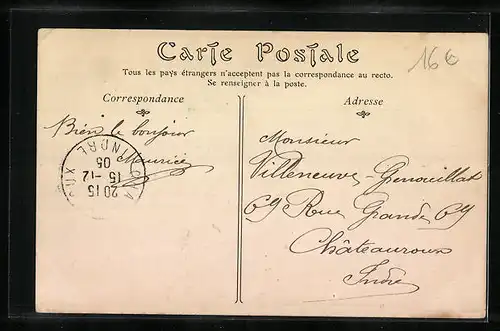 Carte Postale
Tous les pays étrangers n'acceptent pas la correspondance au recto.
Se renseigner à la poste.
16€
Correspondance
Adresse
Bien le bonjour
Maurice
INDRE
20 15
15-12
05
Monsieur
Villeneuve-Genouillat
69 Rue Grande 69
Châteauroux
Indre